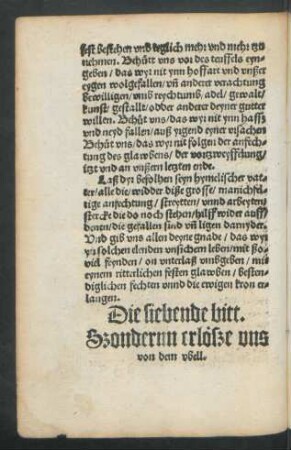 fest bestehen vnd teglich mehr vnd mehr tzu
nehmen. Behütt vns vor des teuffels eyn-
geben / das wyr nit ynn hoffart vnd vnßer
eygen wolgefallen / vñ anderer verachtung
bewilligen / vmb reychtumb / adel / gewalt /
kunst / gestallt / odder anderer deyner gutter
willen. Behüt vns / das wyr nit ynn hassz
vnd neyd fallen / auß yrgend eyner vrsachen
Behüt vns / das wyr nit folgen der anfech-
tung des glawbens / der vortzweyfflung /
itzt vnd an vnßern letzten ende.
Laß dyr befolhen seyn hymelischer vat-
ter / alle die / widder diße grosse / manichfel-
tige anfechtung / streytten / vnnd arbeyten
stercke die do noch stehen / hilff widder auff
denen / die gefallen sind vñ ligen darnyder.
Vnd gib vns allen deyne gnade / das wyr
yn solchen elenden vnsichern leben / mit ßo
viel feynden / on vnterlaß vmbgeben / mit
eynem ritterlichen festen glawben / besten-
diglichen fechten vnnd die ewigen kron er-
langen.
Die siebende bitt.
Szondernn erlösze vns
von dem vbell.